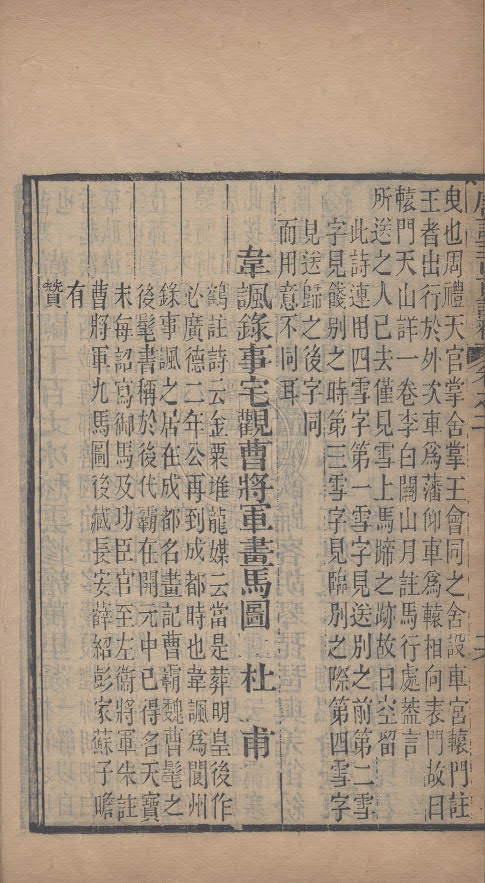 叟也周禮天官掌舍掌王會同之舍設車宮轅門註
王者出行於外次車爲藩仰車爲轅相向表門故曰
轅門天山詳一卷李白關山月註馬行處葢言
所送之人已去僅見雪上馬蹄之跡故曰空留
此詩連用四雪字第一雪字見送別之前第二雪
字見餞別之時第三雪字見臨別之際第四雪字
見送歸之後字同
而用意不同耳
韋諷錄事宅觀曹將軍畫馬圖 杜 甫
鶴註詩云金粟堆龍媒云當是葬明皇後作
必廣德二年公再到成都時也韋諷爲閬州
錄事諷之居在成都名畫記曹霸魏曹髦之
後髦書稱於後代霸在開元中已得名天寶
末每詔寫御馬及功臣官至左衞將軍朱註
曹將軍九馬圖後藏長安薛紹彭家蘇子瞻
有
贊